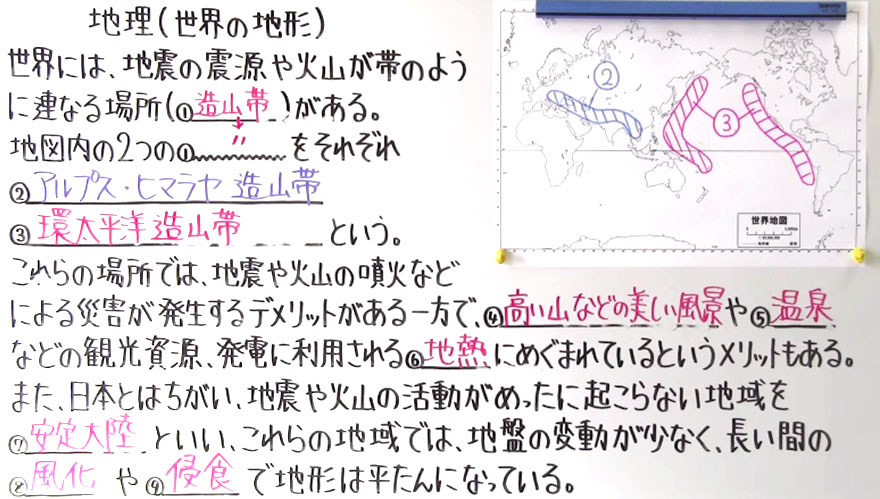 地理(世界の地形)
世界には、地震の震源や火山が帯のよう
に連なる場所(①造山帯)がある。
地図内の2つの① 〃 をそれぞれ
②アルプス・ヒマラヤ造山帯
③環太平洋造山帯 という。
これらの場所では、地震や火山の噴火など
による災害が発生するデメリットがある一方で、④高い山などの美しい風景や⑤温泉
などの観光資源、発電に利用される⑥地熱にめぐまれているというメリットもある。
また、日本とはちがい、地震や火山の活動がめったに起こらない地域を
⑦安定大陸といい、これらの地域では、地盤の変動が少なく、長い間の
⑧風化や⑨侵食で地形は平たんになっている。
②
③
世界地図